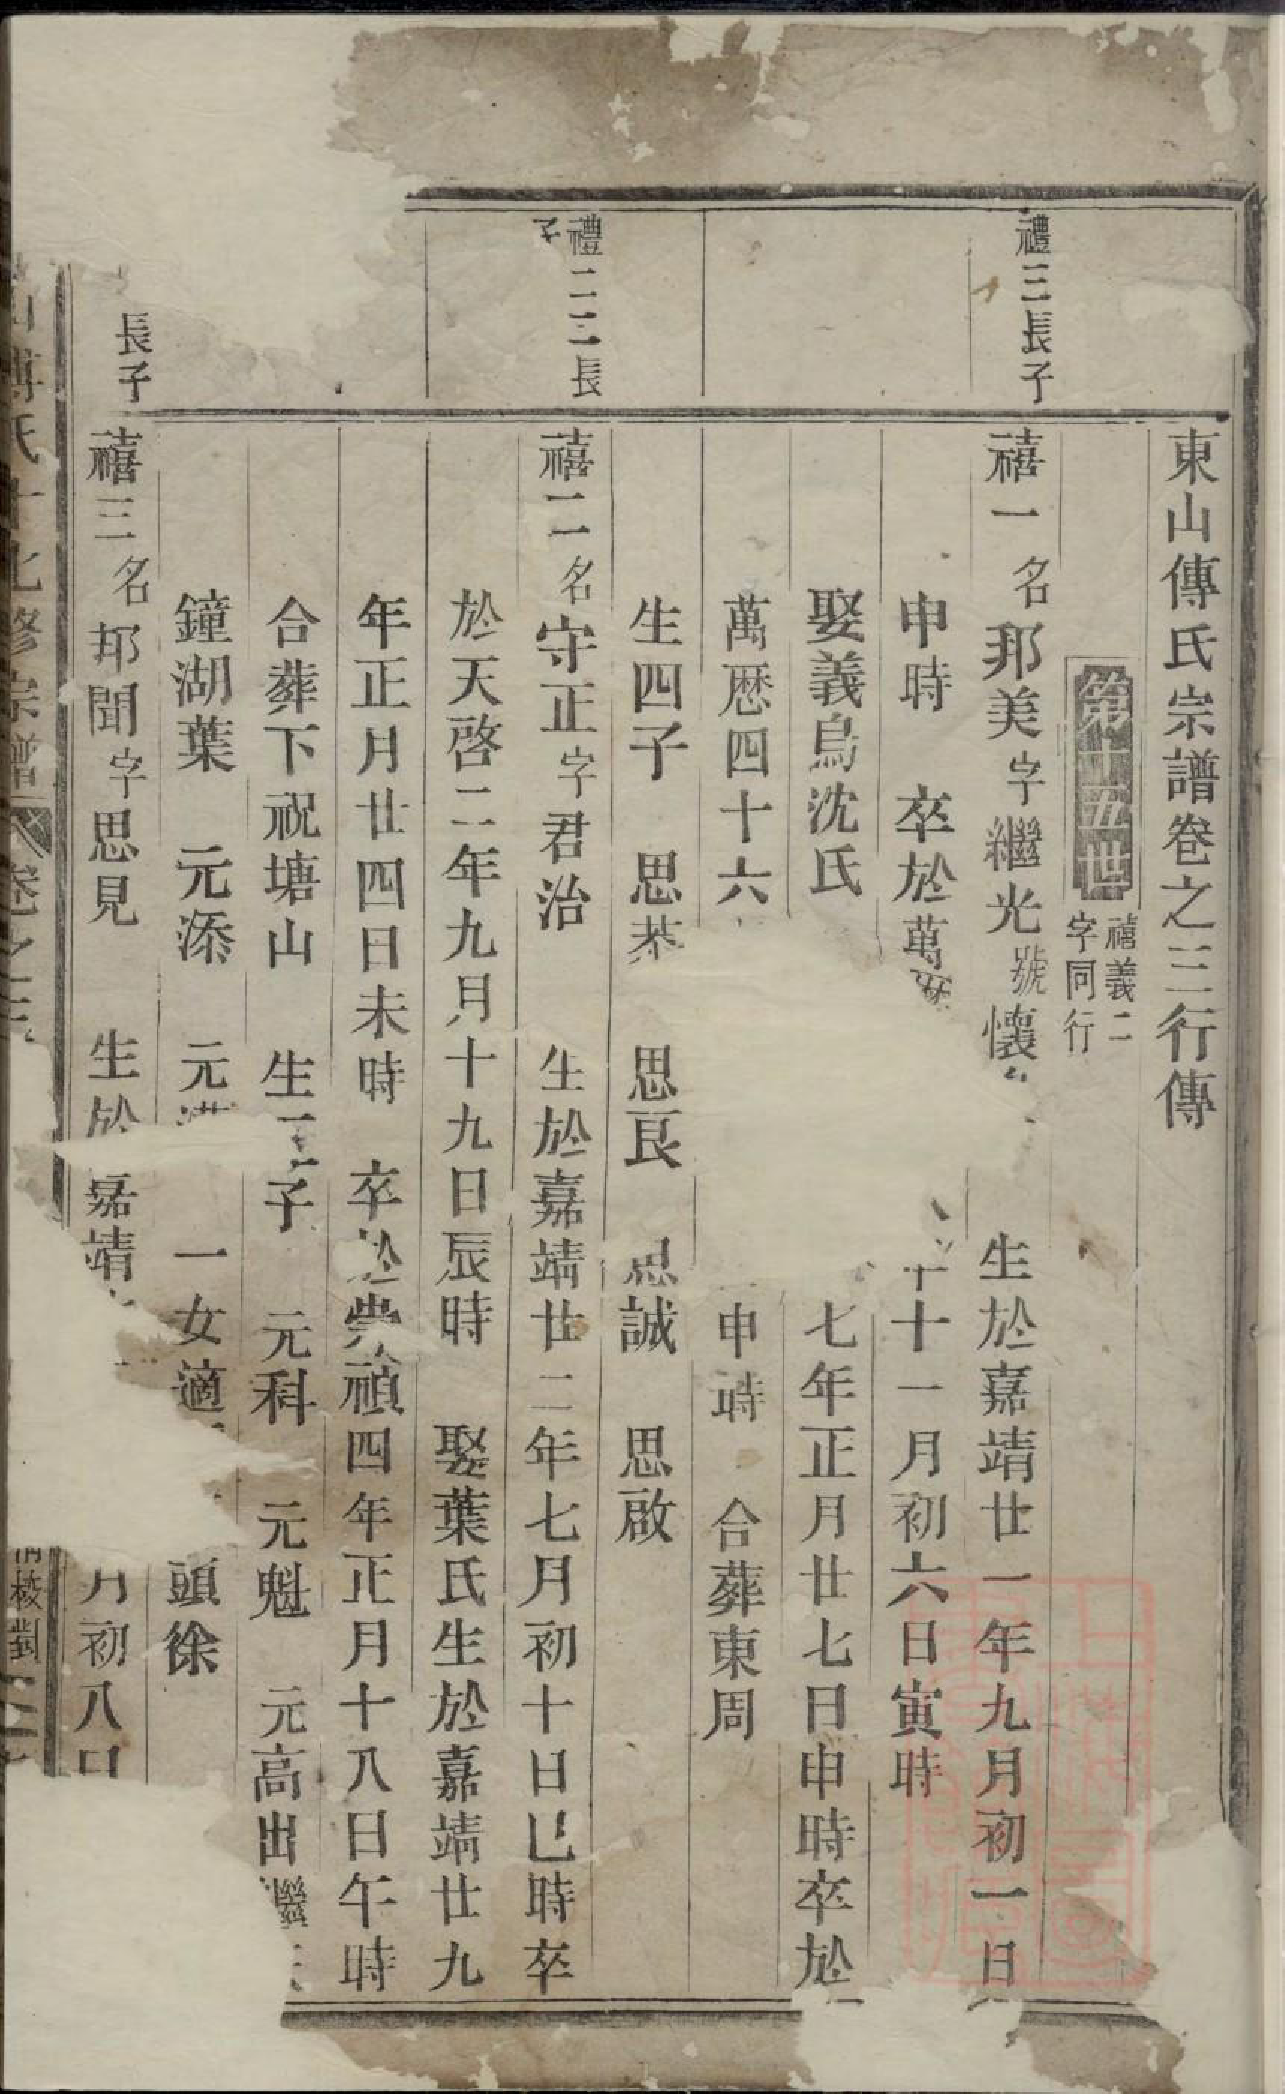 東山傅氏宗譜卷之三行傳
第十五世 禧義二字同行
禮三長子
禧一 名邦美字繼光號懷 生於嘉靖廿一年九月初一日
申時 卒於萬曆 年十一月初六日寅時
娶義烏沈氏 七年正月廿七日申時卒於
萬歷四十六 申時 合葬東周
生四子 思恭 思良 思誠 思啟
禮二二長子
禧二 名守正字君治 生於嘉靖廿二年七月初十日巳時卒
於天啓二年九月十九日辰時 娶葉氏生於嘉靖廿九
年正月廿四日未時 卒於崇禎四年正月十八日午時
合葬下祝塘山 生 子 元科 元魁 元高出繼
鐘湖葉 元添 元 一女適 頭徐
長子
禧三 名邦聞字思見 生於嘉靖 月初八日
山傅氏十七修宗譜 卷之三
校對